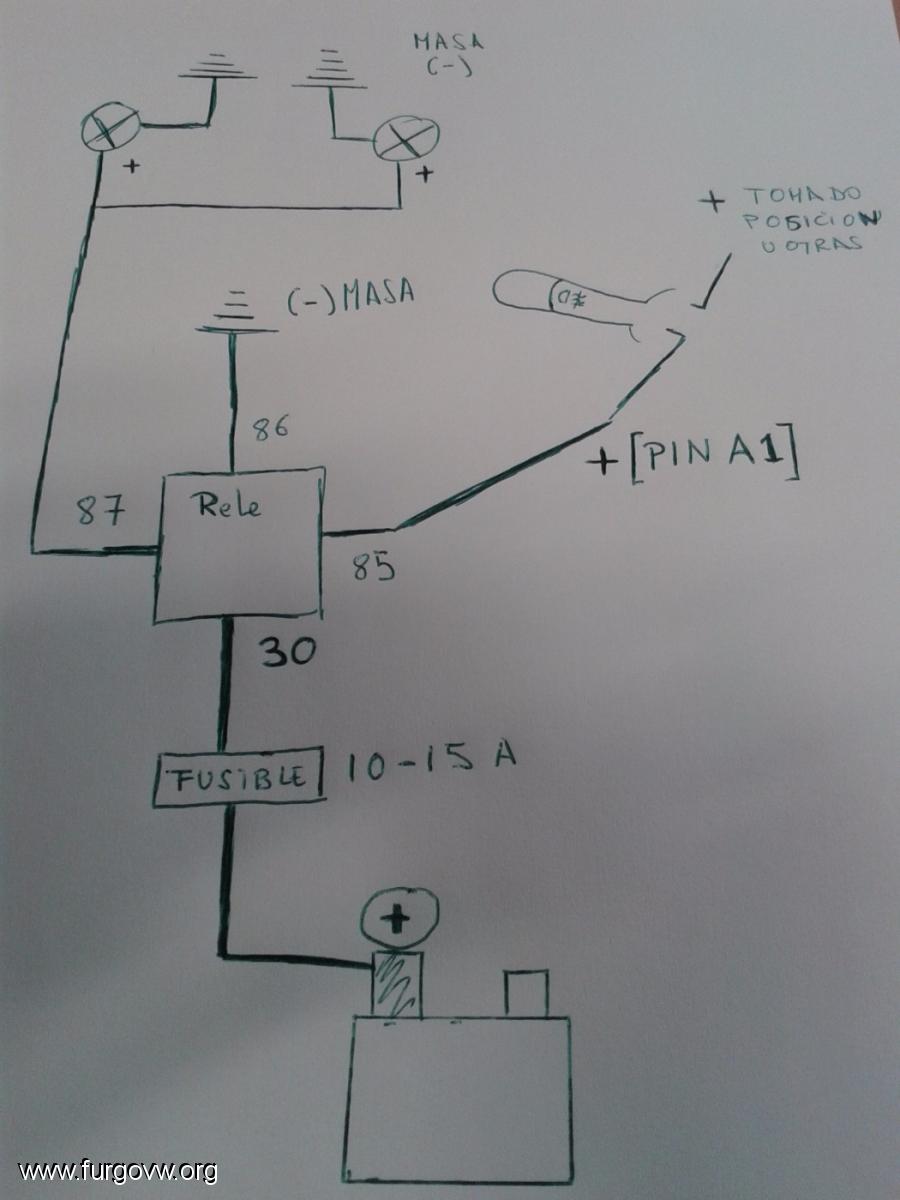 MASA
(-)
+
+
+ TOMADO
POSICION
U OTRAS
(-) MASA
86
+ [PIN A1]
87
Rele
85
30
FUSIBLE
10-15 A
+
www.furgovw.org